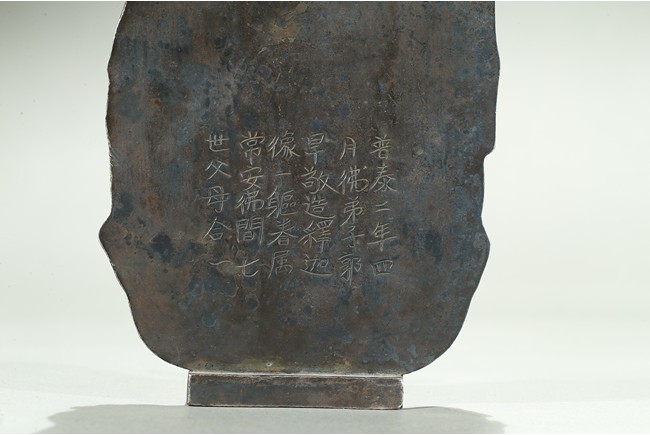 普泰二年四
月佛弟子郭
早敬造釋迦
像一軀眷属
常安佛間七
世父母合一